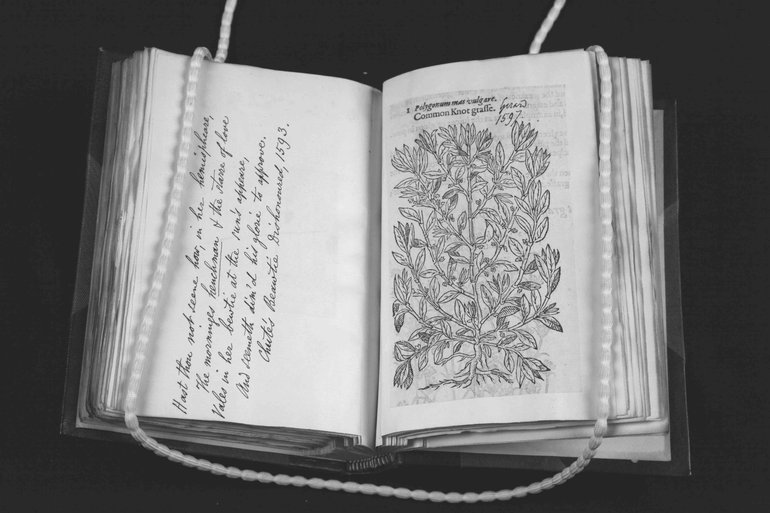 Hast thou not seene how, in her hemispheare,
The morninges henchman & the starre of love
Vales in her bewtie at the sun's appeare,
And seemeth dim'd his glorie to approve.
Chute's Beawtie Dishonoured, 1593.
1 Polygonum mas vulgare.
Common Knot grasse.
Gerard
1597.